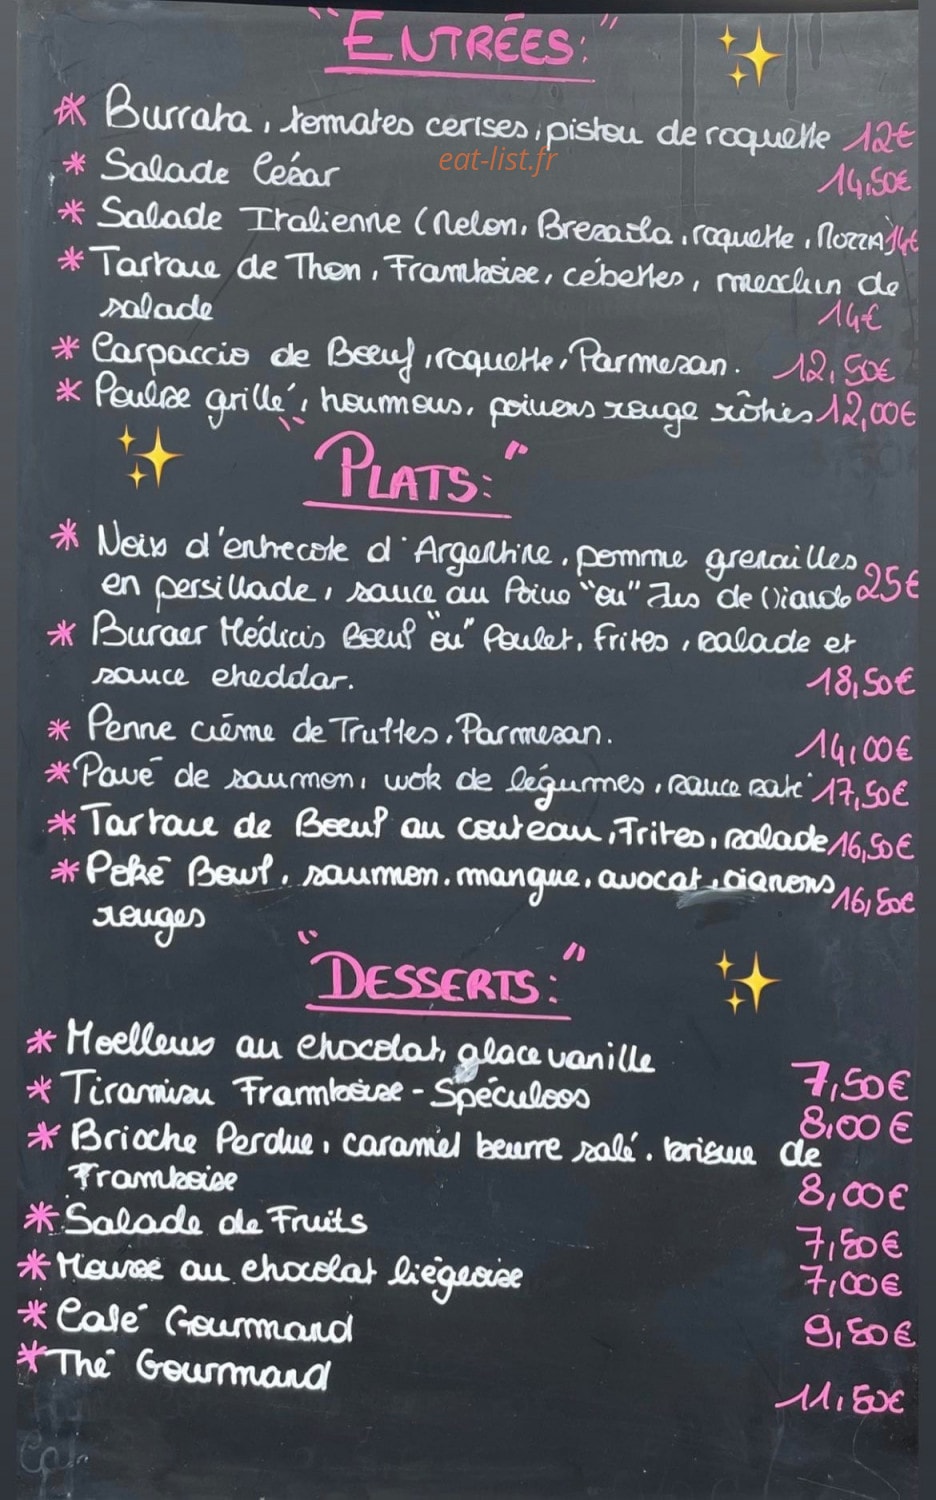 "ENTRÉES:"
* Burrata, tomates cerises, pistou de roquette 12€
eat-list.fr
* Salade César 14,50€
* Salade Italienne (Melon, Bresaola, roquette, MOZZA 14€
* Tartare de Thon, Framboise, cébettes, mesclun de
salade 14€
* Carpaccio de Boeuf, roquette, Parmesan. 12,50€
* Poulpe grillé, houmous, poivrons rouge rôties 12,00€
"PLATS:"
* Noix d'entrecote d'Argentine, pomme grenailles
en persillade, sauce au Poivre "ou" Jus de Viande 25€
* Burger Médicis Boeuf "ou" Poulet, frites, salade et
sauce cheddar. 18,50€
* Penne crème de Truffes, Parmesan. 14,00€
* Pavé de saumon, wok de légumes, sauce saté 17,50€
* Tartare de Boeuf au couteau, Frites, salade 16,50€
* Poké Bowl, saumon, mangue, avocat, oignons 16,50€
rouges
"DESSERTS:"
* Moelleux au chocolat, glace vanille 7,50€
* Tiramisu Framboise - Spéculoos 8,00€
* Brioche Perdue, caramel beurre salé, brisure de
Framboise 8,00€
* Salade de Fruits 7,50€
* Mousse au chocolat liégeoise 7,00€
* Café Gourmand 9,50€
* Thé Gourmand 11,50€